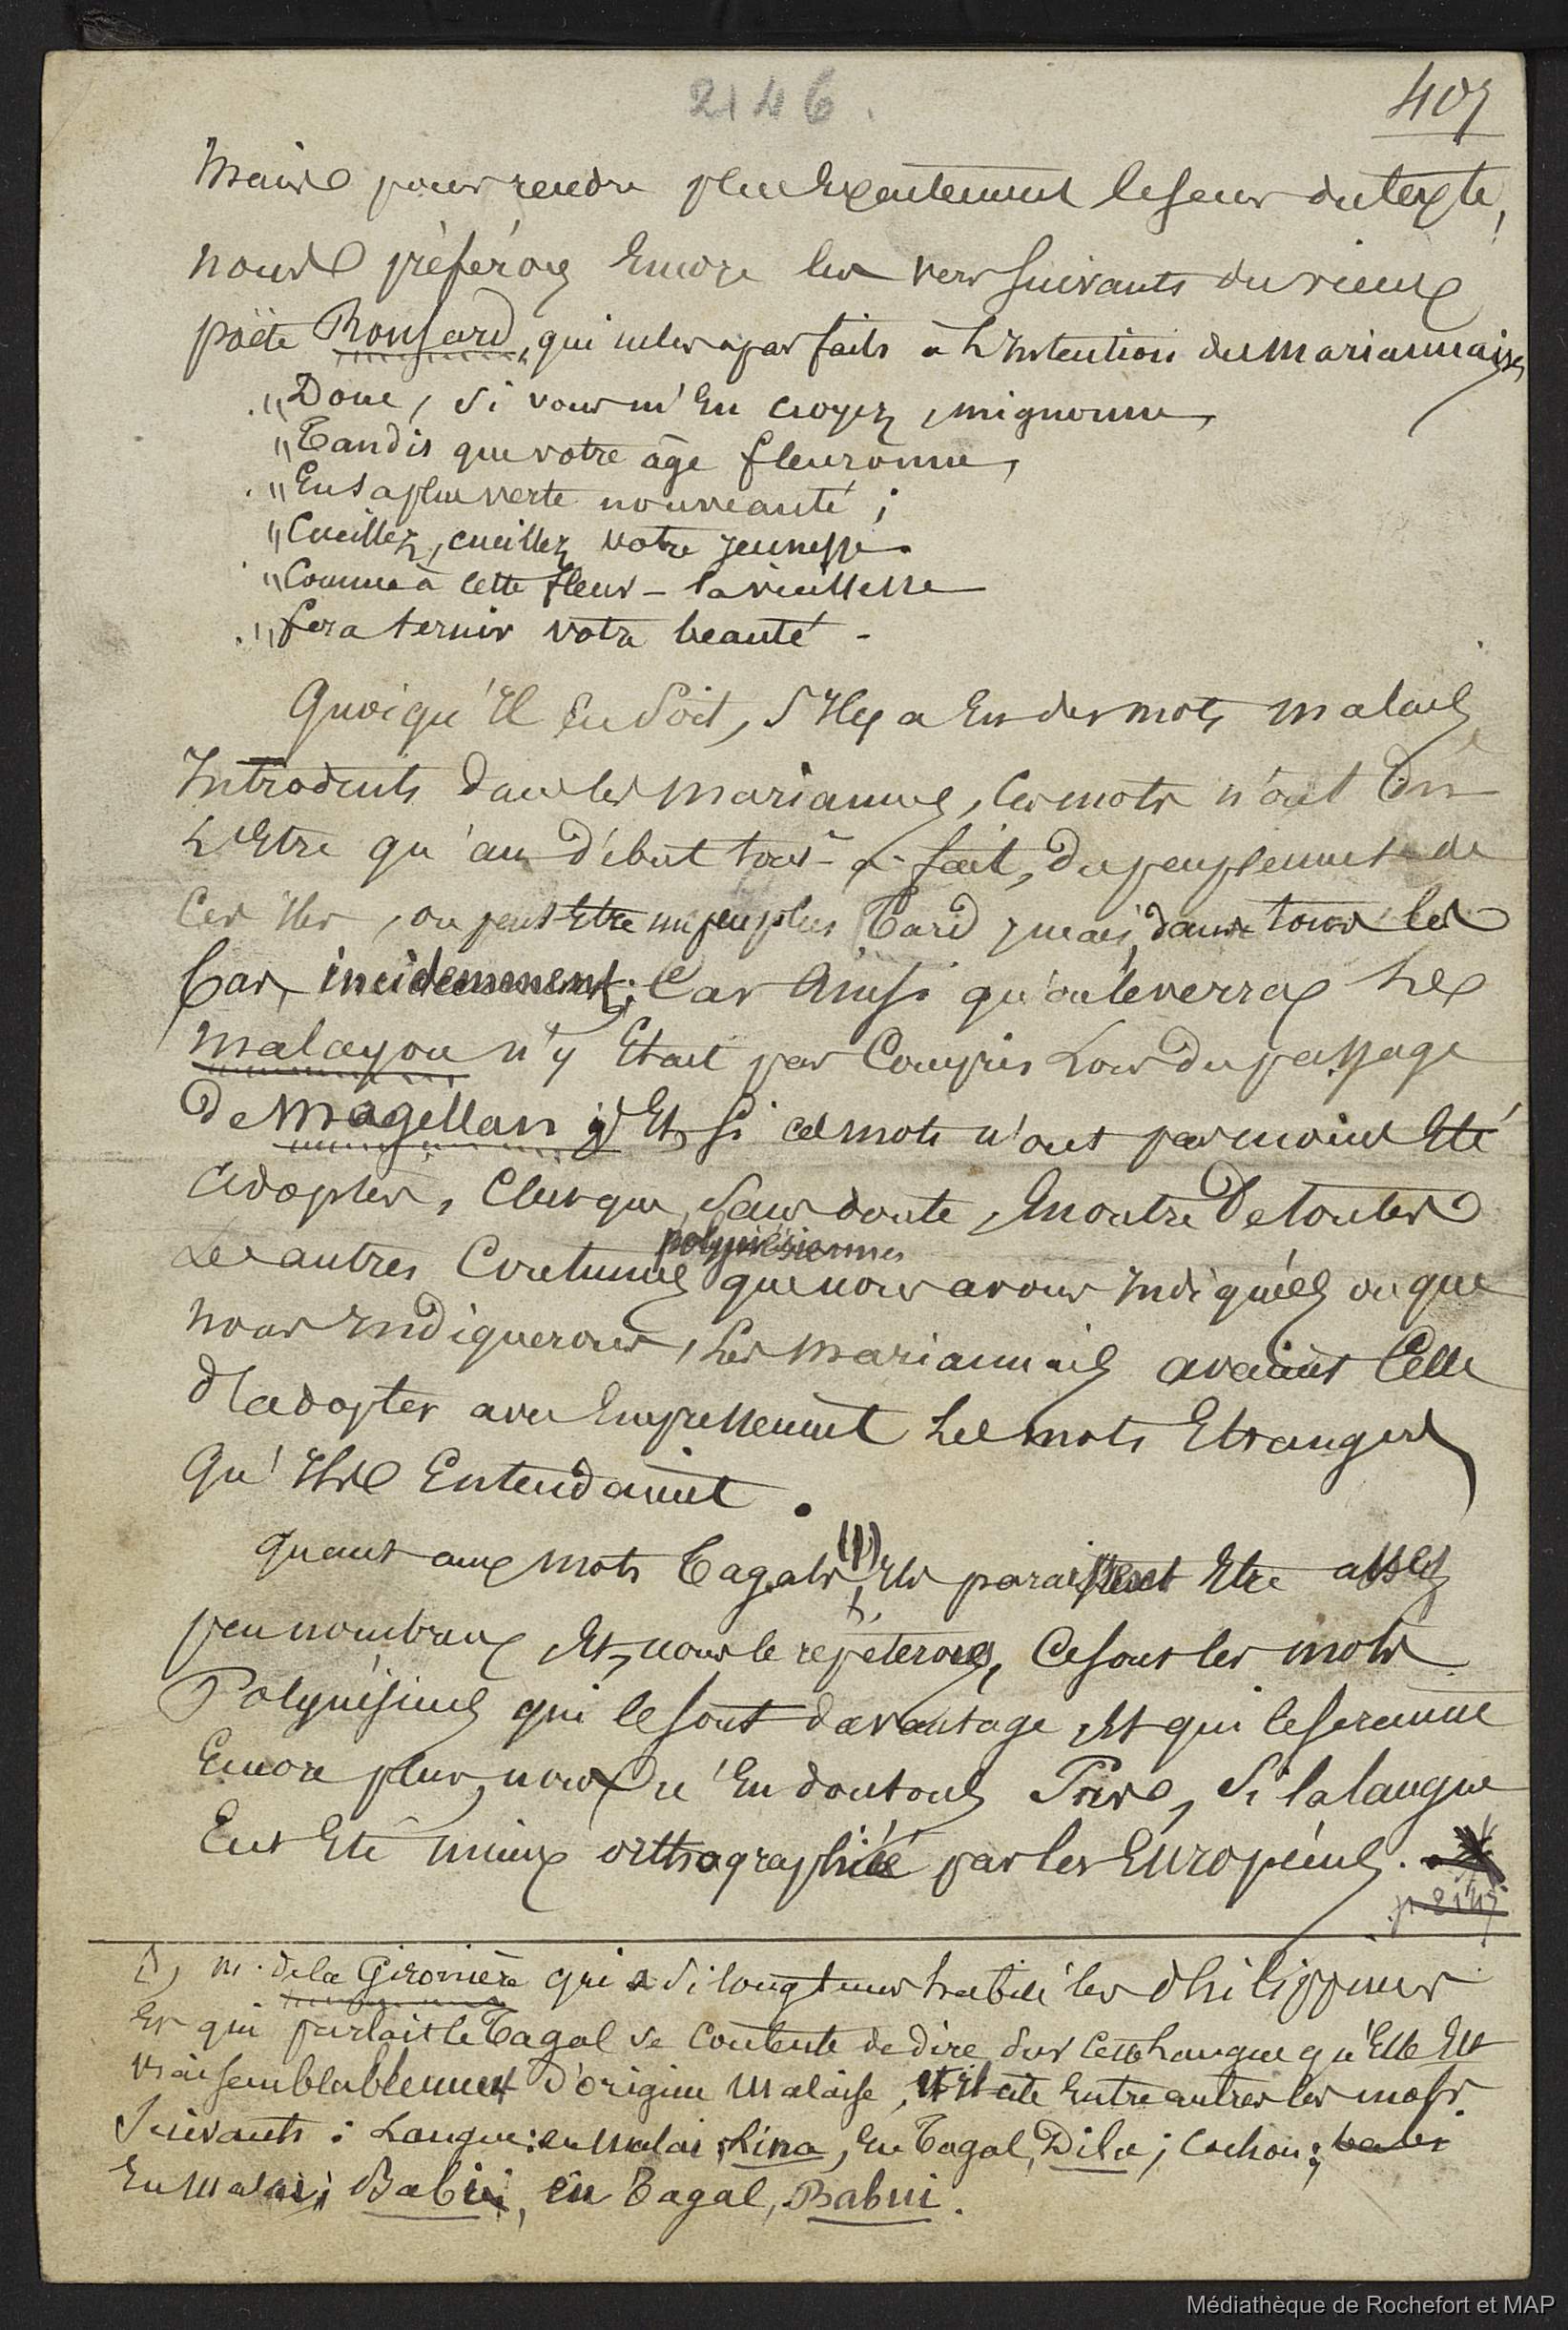 2146.
407
Mais pour rendre plus exactement le sens du texte,
nous préférons encore les vers suivants du vieux
poëte Ronsard, qui ne les a pas faits à l'intention des mariannaises
"Donc, si vous m'en croyez, mignonne,
"Tandis que votre âge fleuronne,
"En sa plus verte nouveauté;
"Cueillez, cueillez votre jeunesse.
"Comme à cette fleur - la vieillesse
"fera ternir votre beauté -
Quoiqu'il en soit, s'il y a eu des mots malais
introduits dans les mariannes, ces mots n'ont dû
l'être qu'au début tout-à-fait, du peuplement de
ces îles, ou peut être un peu plus tard, mais, dans tous les
cas, incidemment; car ainsi qu'on le verra, le
malayou n'y était pas compris lors du passage
de Magellan; et si ces mots n'ont pas moins été
adoptés, c'est que, sans doute, en outre de toutes
polynésiennes
les autres coutumes que nous avons indiquées ou que
nous indiquerons, les mariannais avaient celle
d'adopter avec empressement les mots étrangers
qu'ils entendaient.
Quant aux mots Tagals (1), ils paraissent être assez
peu nombreux et, nous le répéterons, ce sont les mots
Polynésiens qui le sont davantage et qui le seraient
encore plus, nous n'en doutons pas, si la langue
eut été mieux orthographiée par les Européens.
p 2147
1) M. de la Gironière qui a si longtemps habité les Philippines
et qui parlait le Tagal se contente de dire sur cette langue qu'elle est
vraisemblablement d'origine malaise, et il cite entre autres les mots
suivants: Langue: en malai, Lina, en Tagal, Dila; cochon;
en malai; Babi, en Tagal, Babui.
Médiathèque de Rochefort et MAP